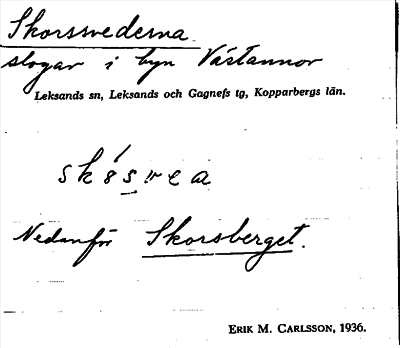 Skorssvederna
slogar i byn Västannor
Leksands sn, Leksands och Gagnefs tg, Kopparbergs län.
Nedanför Skorsberget.
ERIK M. CARLSSON, 1936.